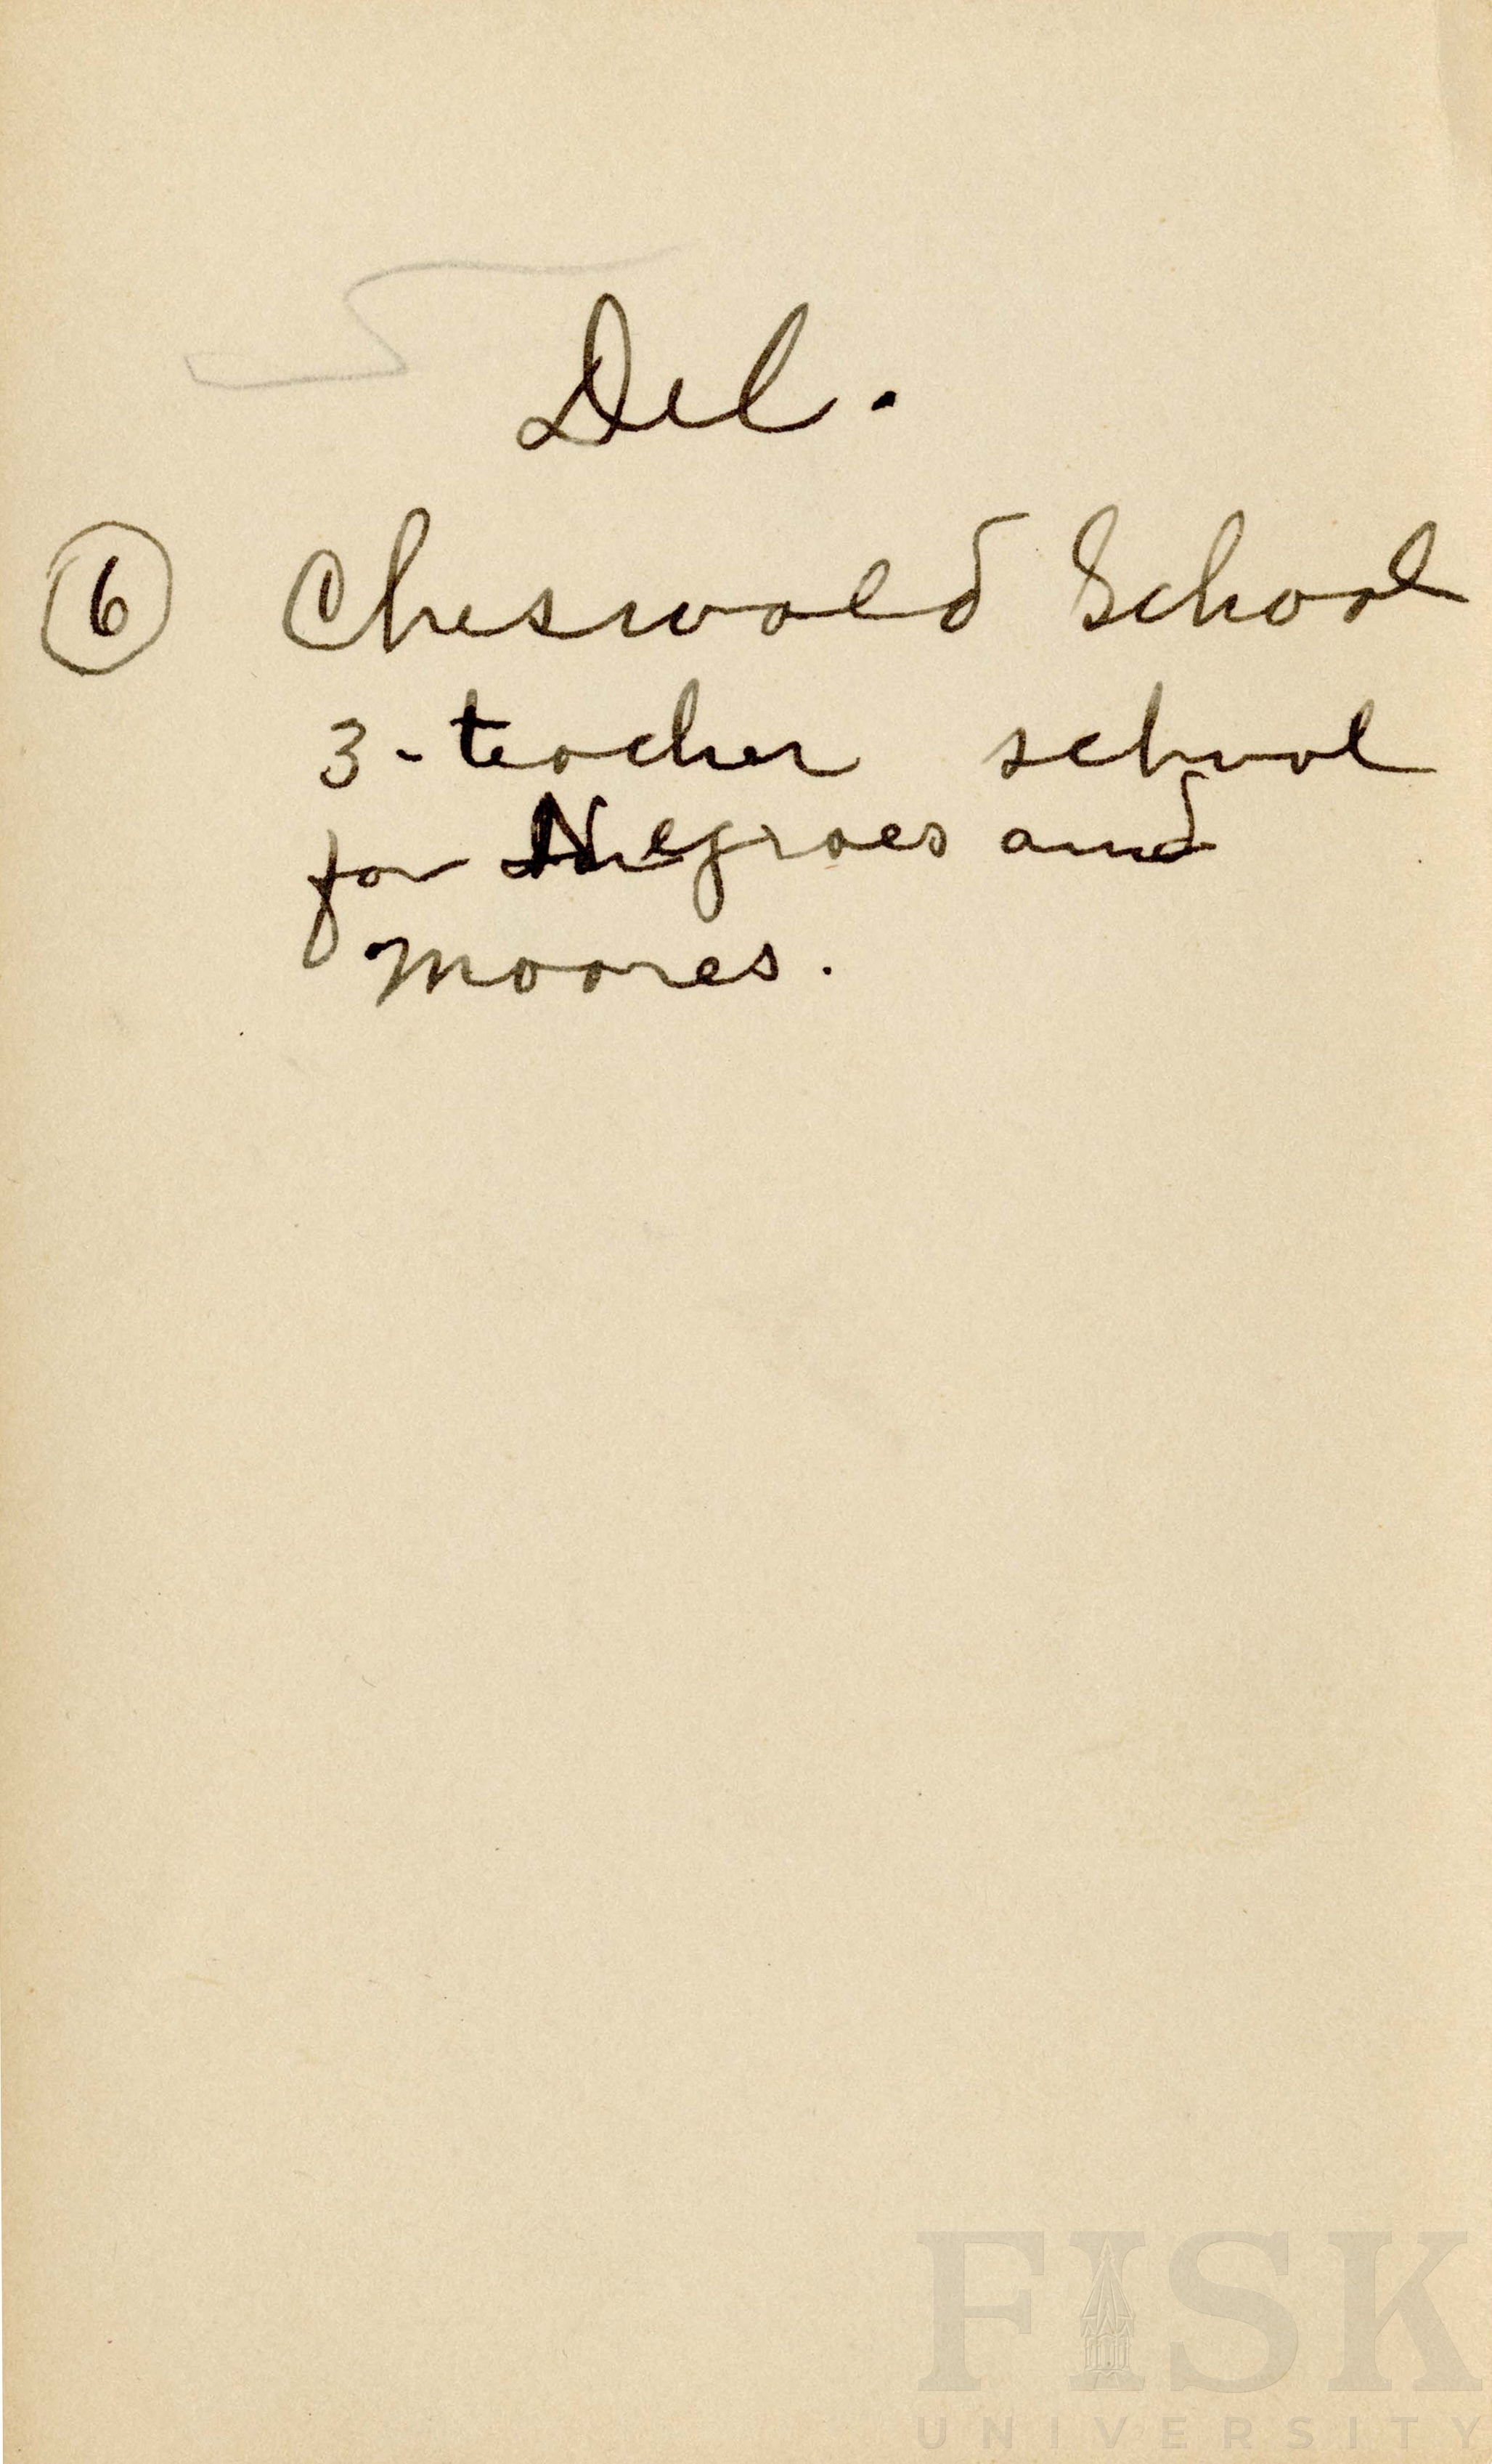 Del.
6 Cheswold School
3-teacher school
for Negroes and
Moores.
FISK
UNIVERSITY